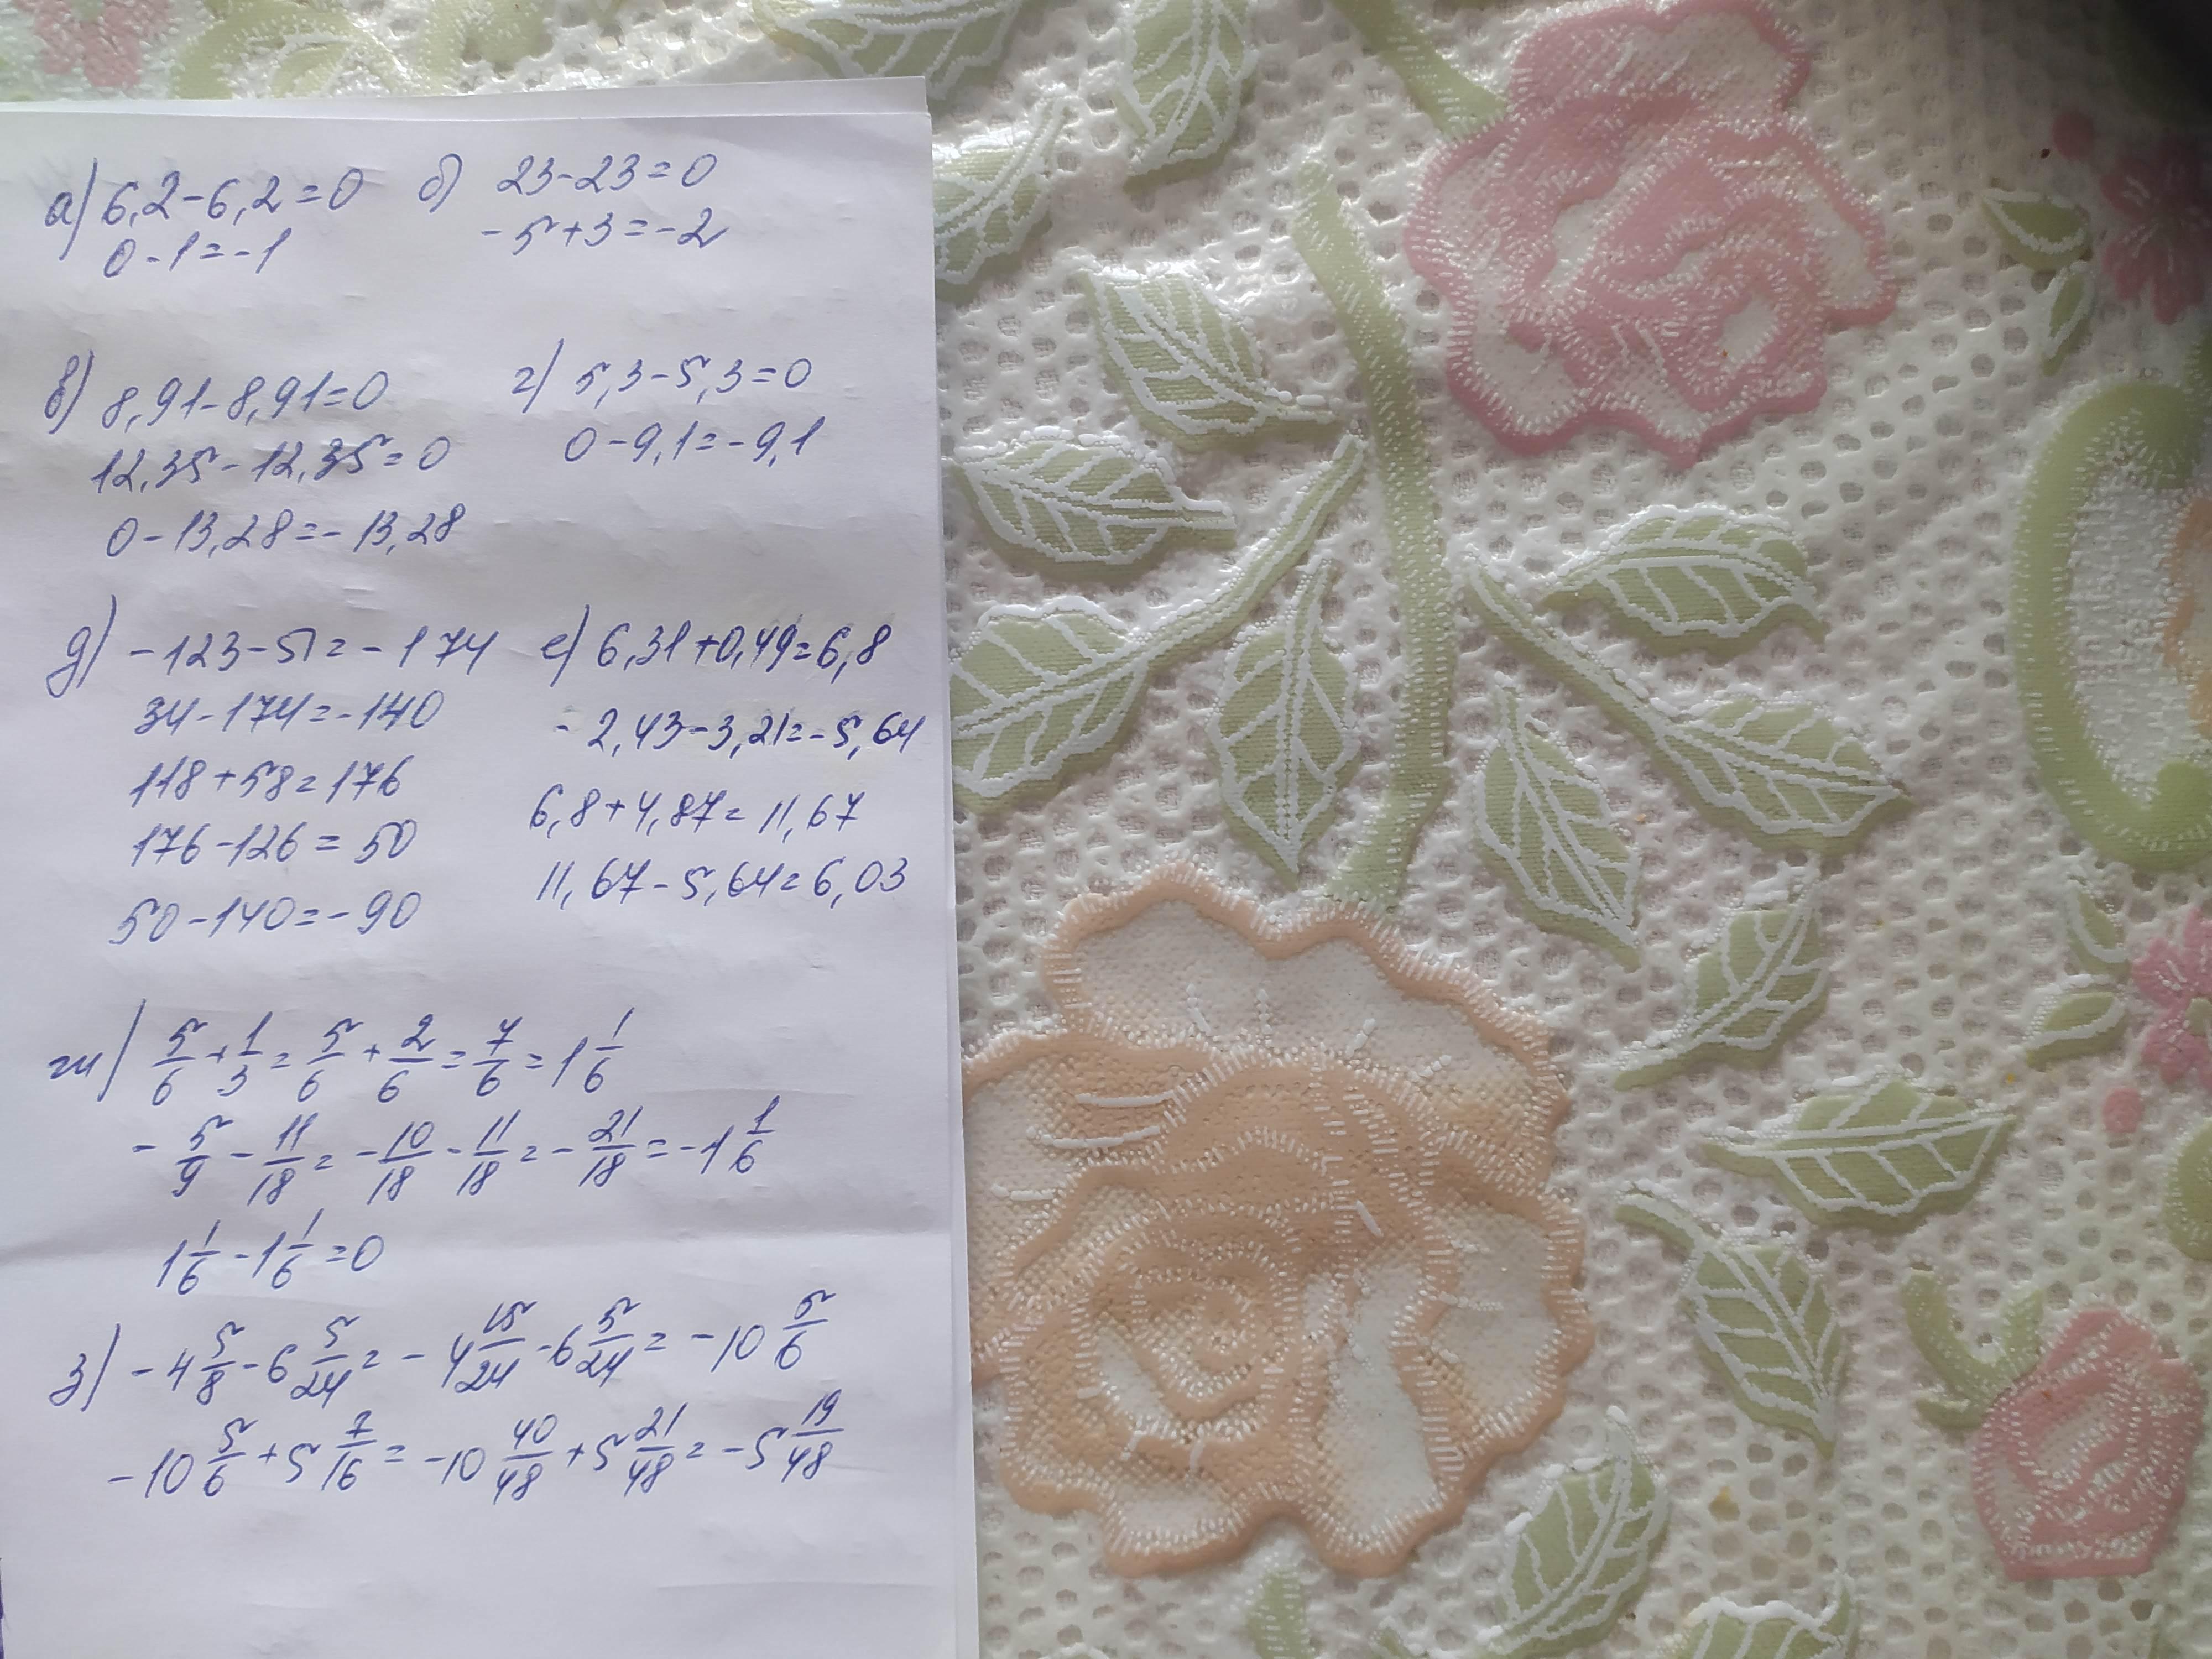 а) 6,2-6,2=0
0-1=-1
б) 23-23=0
-5+3=-2
в) 8,91-8,91=0
12,35-12,35=0
0-13,28=-13,28
г) 5,3-5,3=0
0-9,1=-9,1
д) -123-51=-174
34-174=-140
118+58=176
176-126=50
50-140=-90
е) 6,31+0,49=6,8
-2,43-3,21=-5,64
6,8+4,87=11,67
11,67-5,64=6,03
ж) 5/6+1/3=5/6+2/6=7/6=1 1/6
-5/9-11/18=-10/18-11/18=-21/18=-1 1/6
1 1/6-1 1/6=0
з) -4 5/8-6 5/24=-4 15/24-6 5/24=-10 5/6
-10 5/6+5 7/16=-10 40/48+5 21/48=-5 19/48